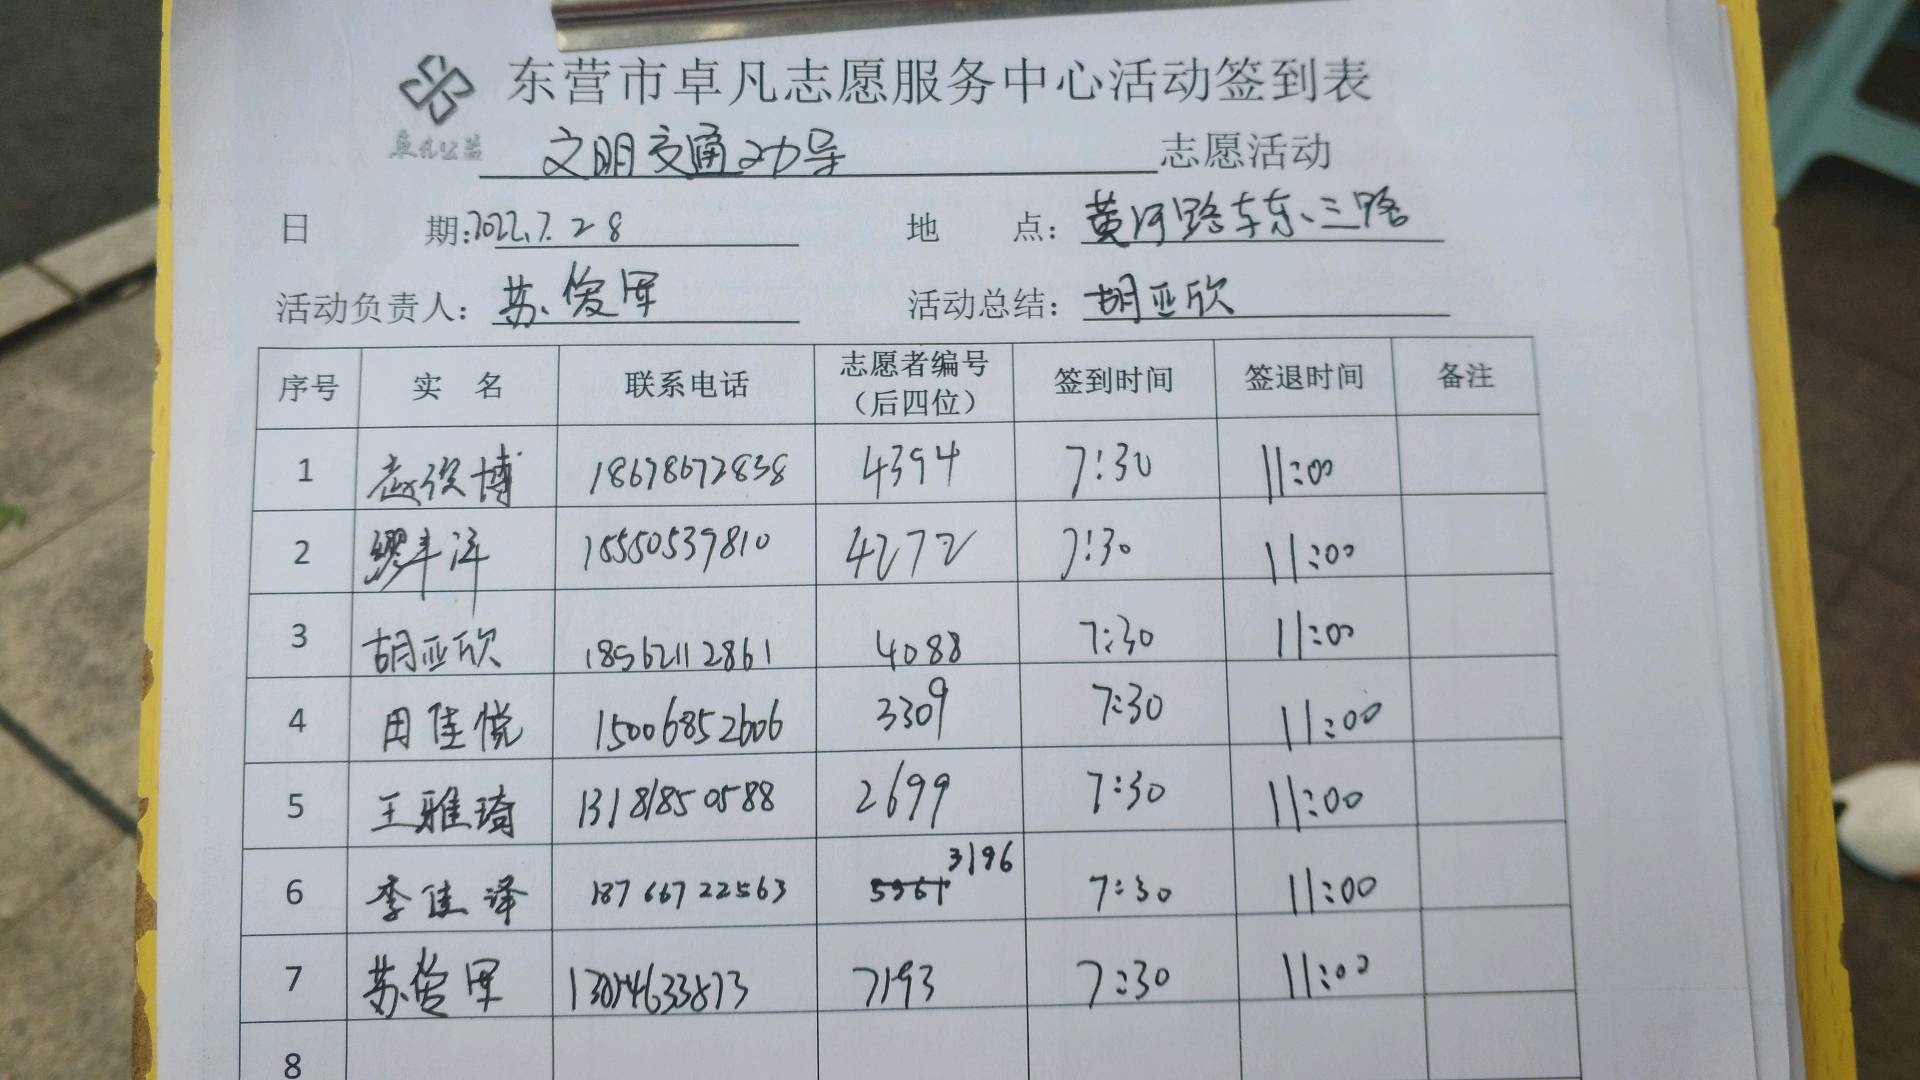 东营市卓凡志愿服务中心活动签到表
卓凡公益
文明交通劝导 志愿活动
日 期:2022.7.28 地 点：黄河路与东三路
活动负责人：苏俊军 活动总结：胡亚欣
序号 实 名 联系电话 志愿者编号（后四位） 签到时间 签退时间 备注
1 赵俊博 18678672838 4394 7:30 11:00
2 缪丰洋 15550539810 4272 7:30 11:00
3 胡亚欣 18562112861 4088 7:30 11:00
4 田佳悦 15006852606 3309 7:30 11:00
5 王雅琦 13181850588 2699 7:30 11:00
6 李佳泽 18766722563 3196 7:30 11:00
7 苏俊军 7193 7:30 11:00
8